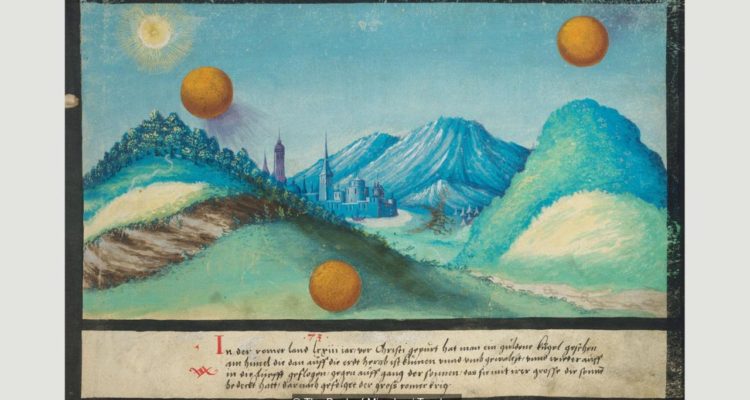 73
In der romer land lxxiii iar vor Christi gepurt hat man ein guldene kugel gesehen
am himel die dan auff die erdt herab ist kumen unnd umb gewalest unnd wider auff
in die lüfft geflogen gegen auff gang der sonnen das sie mit irer grosse die sonn
bedeckt hatt dar nach gefolget der gros romer krig
© The Book of Miracles